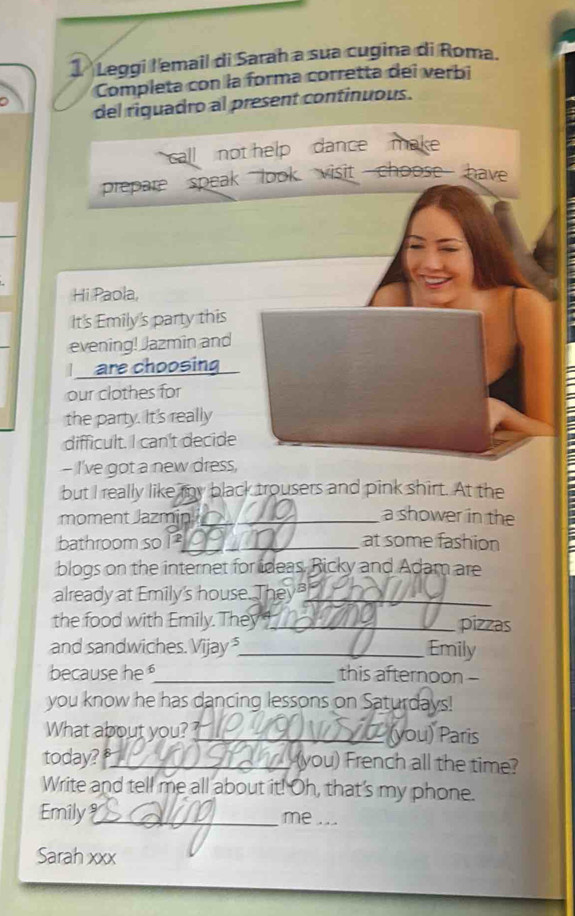 1 Leggi l'email di Sarah a sua cugina di Roma.
Completa con la forma corretta dei verbi
del riquadro al present continuous.
call not help dance make
prepare speak look visit choose have
Hi Paola,
It's Emily's party this
evening! Jazmin and
I are choosing
our clothes for
the party. It's really
difficult. I can't decide
– I've got a new dress,
but I really like my black trousers and pink shirt. At the
moment Jazmin ______ a shower in the
bathroom so I 2 ______ at some fashion
blogs on the internet for ideas. Ricky and Adam are
already at Emily's house. They 3 ______
the food with Emily. They 4 ______ pizzas
and sandwiches. Vijay 5 ______ Emily
because he 6 ______ this afternoon –
you know he has dancing lessons on Saturdays!
What about you? 7 ______ (you) Paris
today? 8 ______ (you) French all the time?
Write and tell me all about it! Oh, that's my phone.
Emily 9 is calling me ...
Sarah xxx